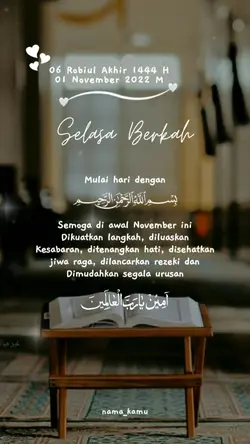 06 Robiul Akhir 1444 H
01 November 2022 M
Selasa Berkah
Mulai hari dengan
بِسْمِ اللهِ الرَّحْمٰنِ الرَّحِيْمِ
Semoga di awal November ini
Dikuatkan langkah, diluaskan
Kesabaran, ditenangkan hati, disehatkan
jiwa raga, dilancarkan rezeki dan
Dimudahkan segala urusan
آمِيْنَ يَارَبَّ الْعَالَمِيْنَ
nama_kamu